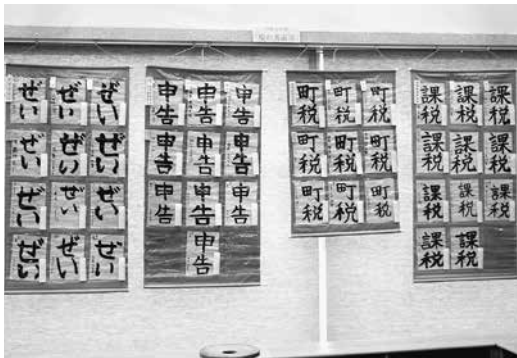 ぜい ぜい ぜい
ぜい ぜい ぜい
ぜい ぜい ぜい
ぜい ぜい ぜい
申告 申告 申告
申告 申告 申告
申告 申告 申告
申告
町税 町税 町税
町税 町税 町税
町税 町税 町税
課税 課税 課税
課税 課税 課税
課税 課税 課税
課税 課税